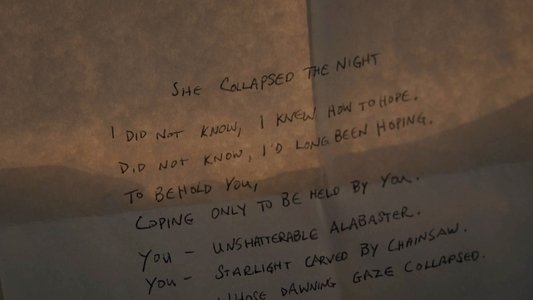 SHE COLLAPSED THE NIGHT
I DID NOT KNOW, I KNEW HOW TO HOPE.
DID NOT KNOW, I'D LONG BEEN HOPING.
TO BEHOLD YOU,
COPING ONLY TO BE HELD BY YOU.
YOU - UNSHATTERABLE ALABASTER.
YOU - STARLIGHT CARVED BY CHAINSAW.
WHOSE DAWNING GAZE COLLAPSED.